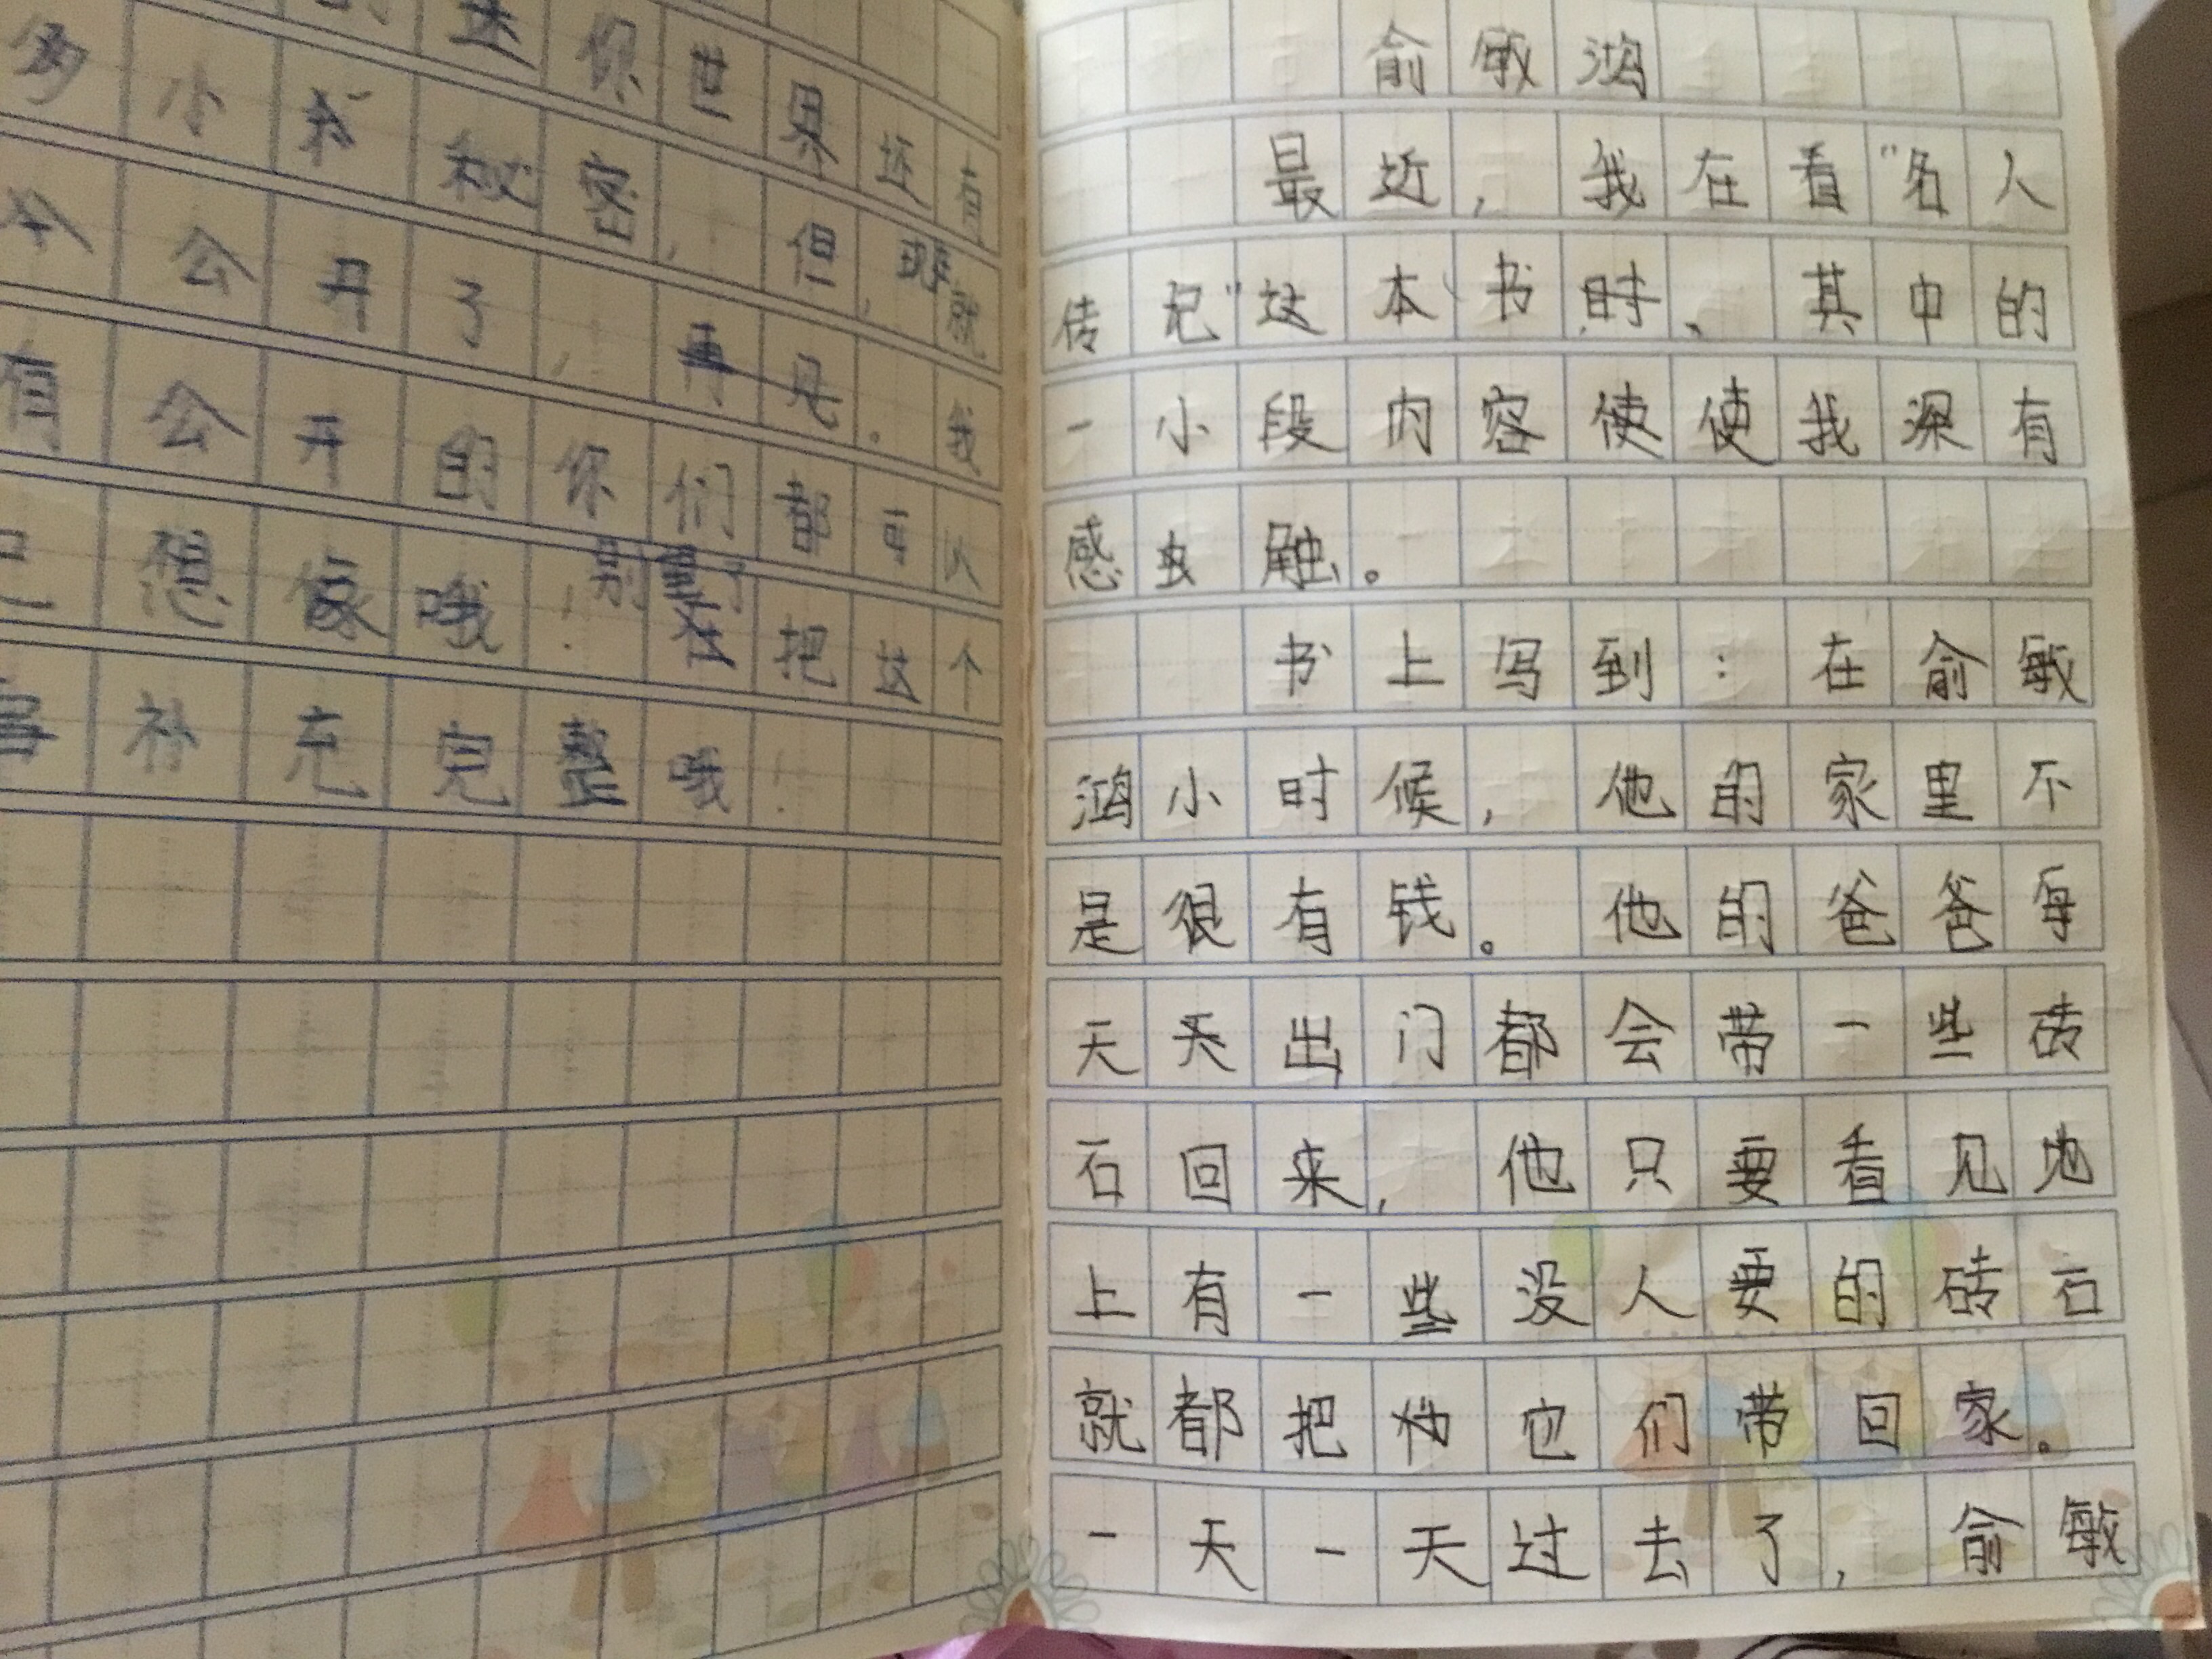 达你世界还有
多小我秘密，但，班就
今公开了，再见。我
有公开的你们都可以
己想像哦！别忘了在把这个
事补充完整哦！
俞敏鸿
最近，我在看“名人
传记”这本书时，其中的
一小段内容使使我深有
感虫触。
书上写到：在俞敏
鸿小时候，他的家里不
是很有钱。他的爸爸每
天天出门都会带一些砖
石回来，他只要看见地
上有一些没人要的砖石
就都把它们带回家。
一天一天过去了，俞敏